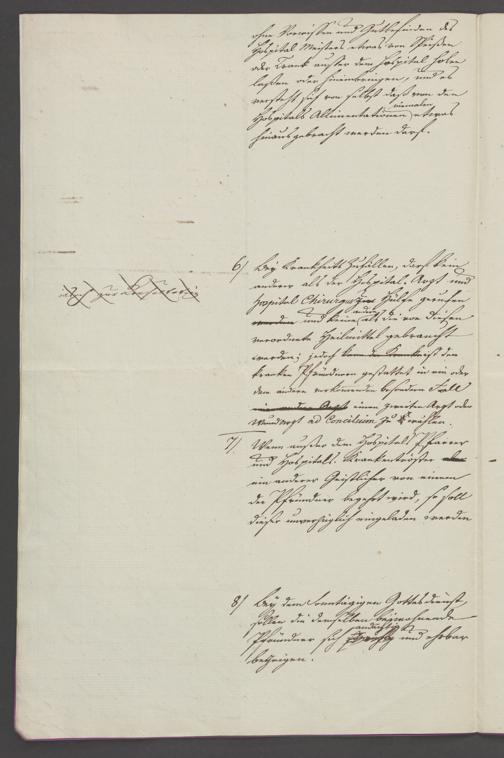 ohne Vorwissen und Gutbefinden des
Hospital Meisters etwas von Speisen
oder Trank ausser dem Hospital holen
lassen oder hineinbringen, und es
versteht sich von selbst daß von den
niemalen
Hospitals Allimentationen etwas
hinausgebracht werden darf.
6/ Bey Krankheits Zufällen, darf kein
anderer als der Hospital-Arzt und
Hospital Chirurgus zur Hülfe gerufen
werden und keine andere als die von diesen
verordnete Heilmittel gebraucht
werden; jedoch ist den
kranken Pfründnern gestattet in ein oder
dem andern vorkommenden besondern Fall
einen zweiten Arzt oder
Wundarzt ad Concilium zu wählen.
7/ Wenn ausser dem Hospitals Pfarrer
und Hospitals-Krankentröster
ein anderer Geistlicher von einem
der Pfründner begehrt wird, so soll
dieser unverzüglich eingeladen werden
8/ Bey dem sonntägigen Gottesdienst,
sollen die demselben beywohnende
andächtig
Pfründner sich und ehrbar
bezeigen.